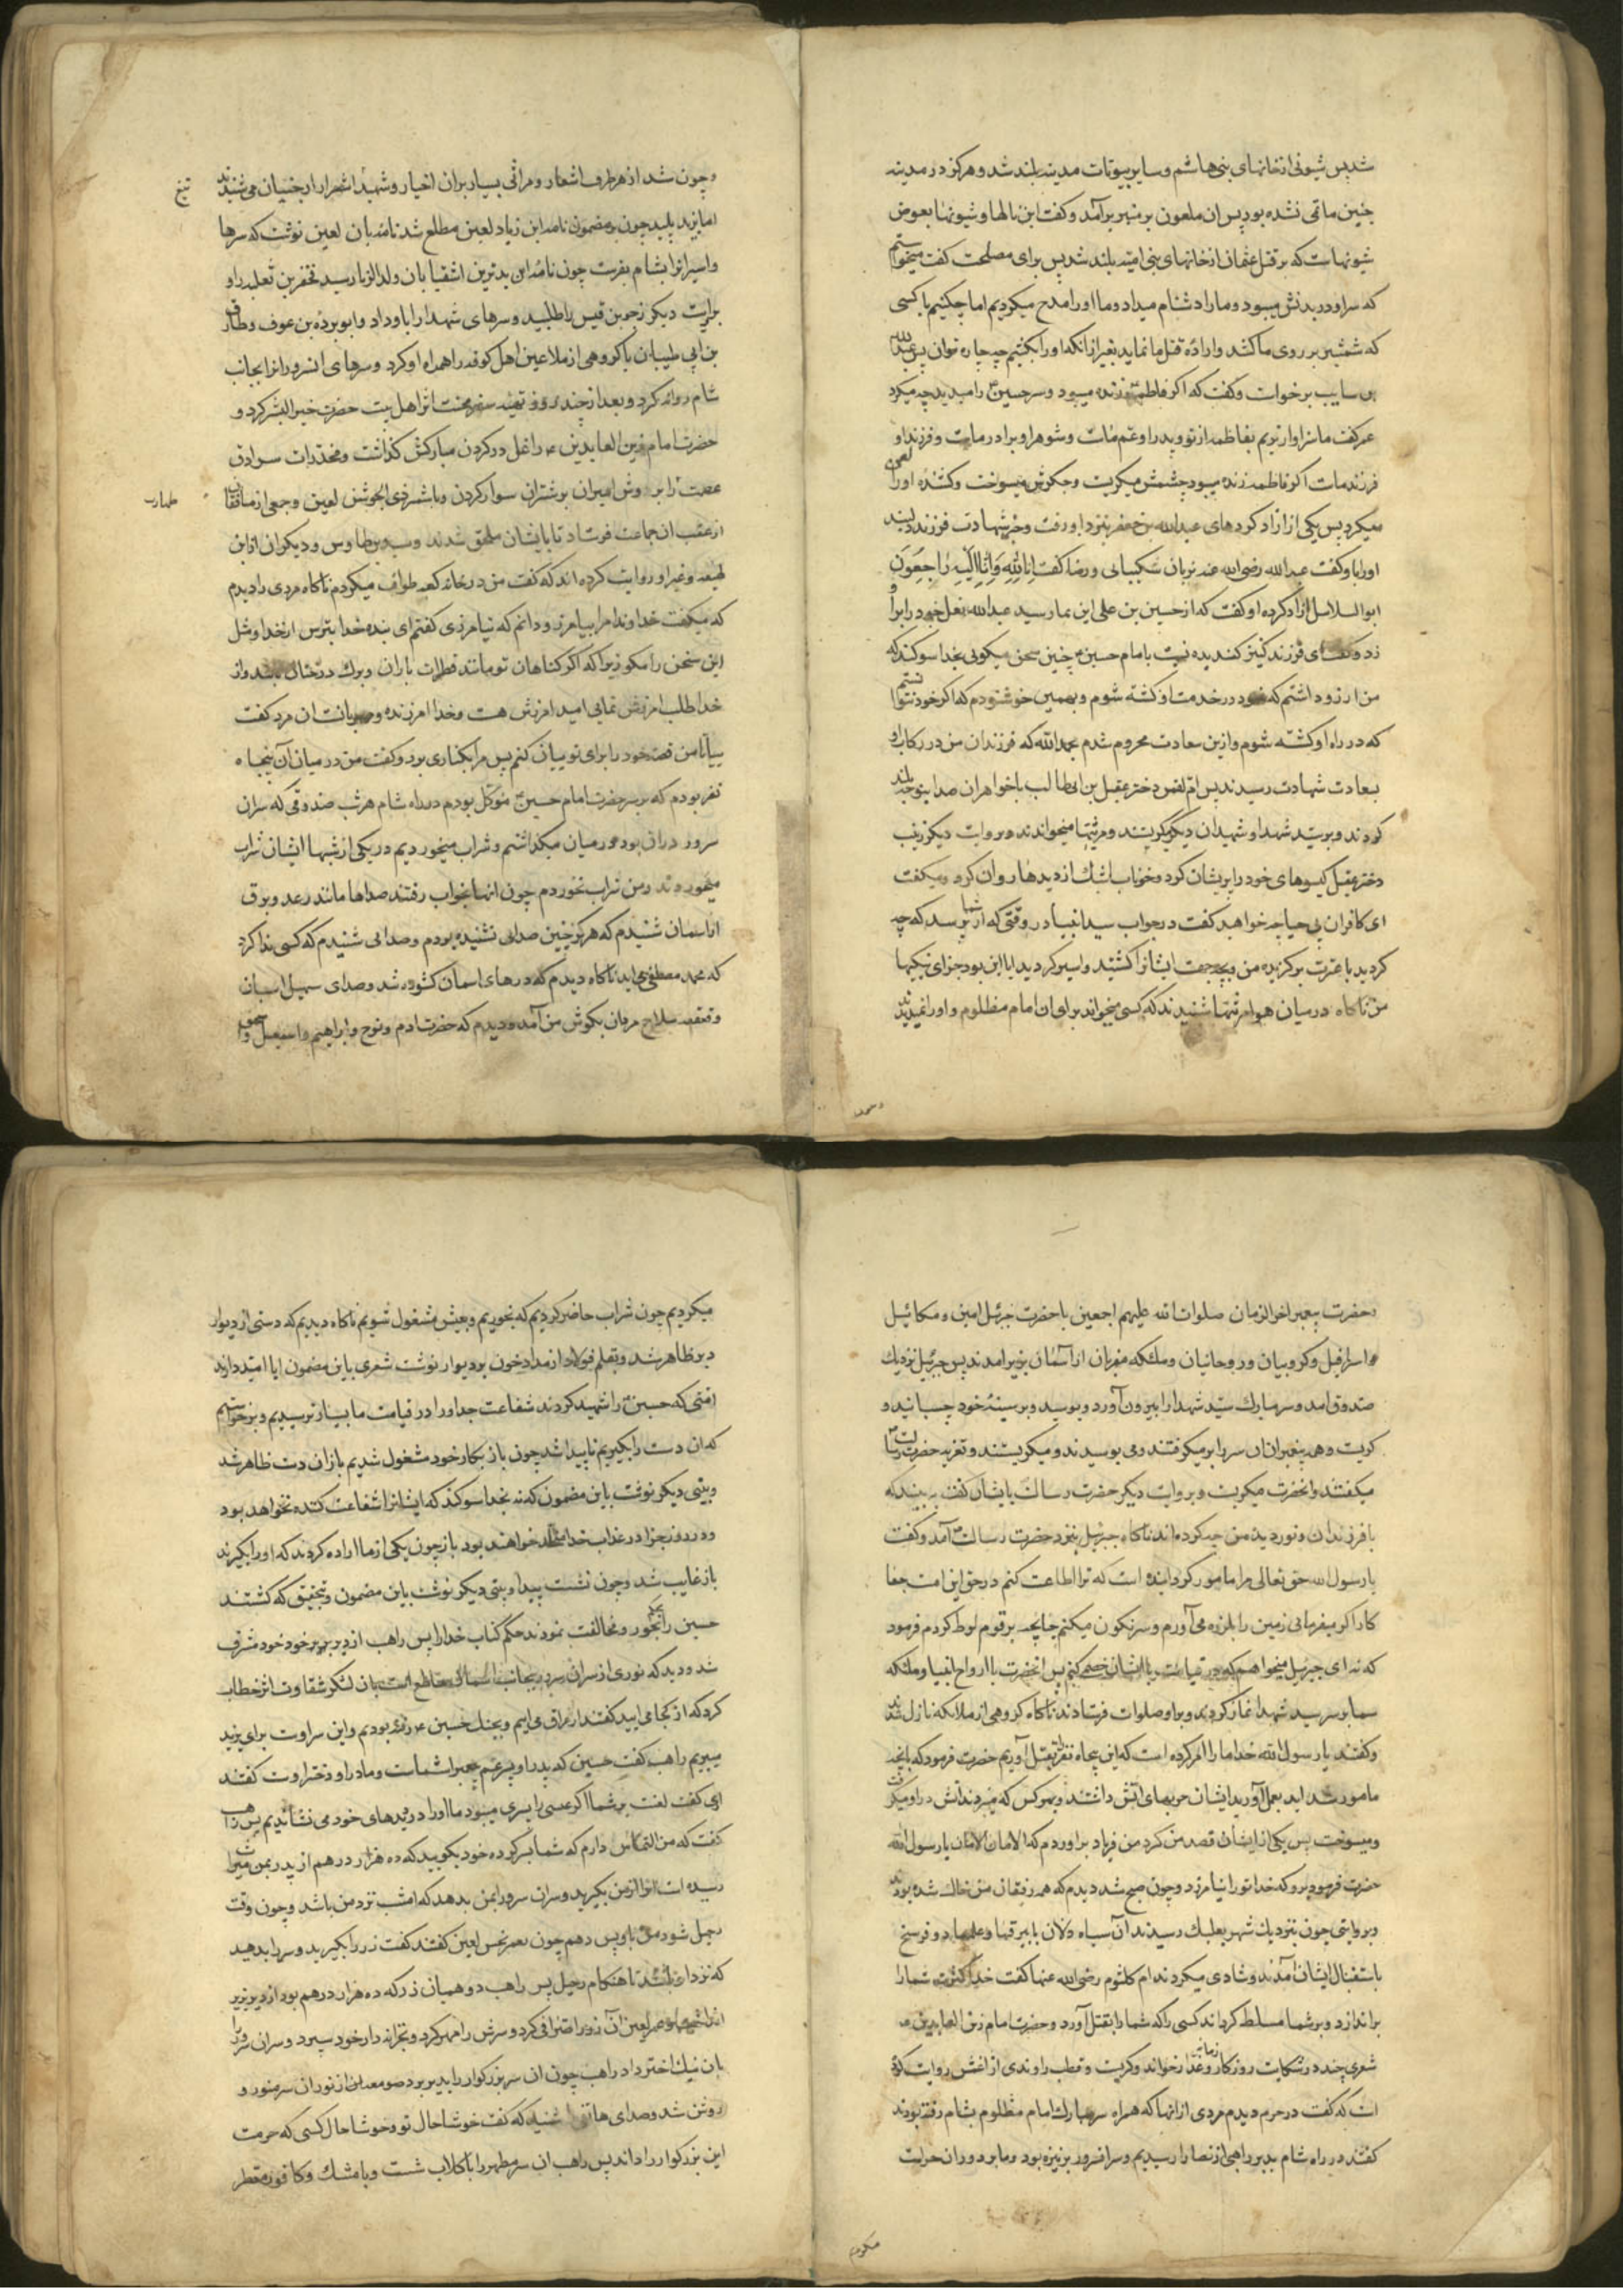 شد پس شیونی از خانهای بنی هاشم و سایر بیوتات مدینه بلند شد و هرگز در مدینه
چنین ماتمی نشده بود پس ان ملعون بر منبر برآمد و کفت این نالها و شیونها بعوض
شیونهاست که بر قتل عثمان از خانهای بنی امیه بلند شد پس برای مصلحت کفت میخواستم
که سر او در بدنش میبود و ما را دشنام میداد و ما او را مدح میکردیم اما چکنیم با کسی
که شمشیر بر روی ما کشد و اراده قتل ما نماید بغیر از انکه او را بکشیم چه چاره توان پس عبدالله
بن سایب برخواست و کفت که اکر فاطمه زنده میبود و سر حسین را میدید چه میکرد
عمر کفت ما سزاوارتریم بفاطمه از تو پدر او عم ماست و شوهر او برادر ماست و فرزند او
فرزند ماست اکر فاطمه زنده میبود چشمش میکریست و جکرش میسوخت و کشنده او را لعن
میکرد پس یکی از ازاد کردهای عبدالله بن جعفر بنزد او رفت و خبر شهادت فرزند دلبند
او را باو کفت عبدالله رضی الله عنه بزبان شکیبائی و رضا کفت اِنّا لِلّهِ وَاِنّا اِلَیْهِ رٰاجِعُونَ
ابو السلاسل ازاد کرده او کفت که از حسین بن علی این بما رسید عبدالله نعل خود را بر او
زد و کفت ای فرزند کنیز کندیده نسبت بامام حسین چنین سخن میکوئی بخدا سوکند که
من ارزو داشتم که خود در خدمت او کشته شوم و بهمین خوشنودم که اکر خود نتوانستم
که در راه او کشته شوم و ازین سعادت محروم شدم بحمدالله که فرزندان من در رکاب او
بسعادت شهادت رسیدند پس ام لقمن دختر عقیل بن ابی طالب با خواهران صدا بنوحه بلند
کردند و بر سید شهدا و شهیدان دیکر کریستند و مرثیها میخواندند و بروایت دیکر زینب
دختر عقیل کیسوهای خود را پریشان کرد و خوناب اشک از دیدها روان کرد و میکفت
ای کافران بی حیا چه خواهید کفت در جواب سید انبیا در وقتی که از شما پرسد که چه
کردید با عترت برکزیده من و بچه جهت ایشانرا کشتید و اسیر کردید ایا این بود جزای نیکیها
من ناکاه در میان هوا مرثیها شنیدند که کسی میخواند برای ان امام مظلوم و او را نمیدیدند
و چون شد از هر طرف اشعار و مراثی بسیار بران اخیار و شهید اشرار از جنیان می شنیدند
اما یزید پلید چون بر مضمون نامه ابن زیاد لعین مطلع شد نامه بان لعین نوشت که سرها
و اسیرانرا بشام بفرست چون نامه این بدترین اشقیا بان ولد الزنا رسید مخفر بن ثعلبه را و
بروایت دیکر زحر بن قیس را طلبید و سرهای شهدا را باو داد و ابو برده بن عوف و طارق
بن ابی ظبیان با کروهی از ملاعین اهل کوفه را همراه او کرد و سرهای انسرورانرا بجانب
شام روانه کرد و بعد از چند روز تهیه سفر محنت اثر اهل بیت حضرت خیر البشر کرد و
حضرت امام زین العابدین ع را غل در کردن مبارکش کذاشت و مخدرات سرادق
عصمت را بروش اسیران بر شتران سوار کردن و با شمر ذی الجوشن لعین و جمعی از منافقان
از عقب ان جماعت فرستاد تا بایشان ملحق شدند و سید بن طاوس و دیکران از ابن
لهیعه و غیر او روایت کرده اند که کفت من در خانه کعبه طواف میکردم ناکاه مردی را دیدم
که میکفت خداوندا مرا بیامرز و دانم که نیامرزی کفتم ای بنده خدا بترس از خدا و مثل
این سخن را مکو زیرا که اکر کناهان تو مانند قطرات باران و برك درختان باشد و از
خدا طلب امرزش نمایی امید امرزش هست و خدا امرزنده و مهربانست ان مرد کفت
بیا تا من قصه خود را برای تو بیان کنم پس مرا بکناری برد و کفت من در میان آن پنجاه
نفر بودم که بر سر حضرت امام حسین موکل بودم در راه شام هر شب صندوقی که سر ان
سرور در ان بود در میان میکذاشتیم و شراب میخوردیم در یکی از شبها ایشان شراب
میخوردند و من شراب نخوردم چون انها بخواب رفتند صداها مانند رعد و برق
از اسمان شنیدم که هرکز چنین صدایی نشنیده بودم و صدایی شنیدم که کسی ندا کرد
که محمد مصطفی می اید ناکاه دیدم که درهای اسمان کشوده شد و صدای سهیل اسبان
و قعقعه سلاح مردان بکوش من آمد و دیدم که حضرت ادم و نوح و ابراهیم و اسمعیل و اسحق
و حضرت پیغمبر اخر الزمان صلوات الله علیهم اجمعین با حضرت جبرئیل امین و میکائیل
و اسرافیل و کروبیان و روحانیان و ملئکه مقربان از آسمان بزیر امدند پس جبرئیل نزدیك
صندوق امد و سر مبارك سید شهدا را بیرون آورد و بوسید و بر سینهٔ خود چسبانید و
کریست و همه پیغمبران ان سر را بر میکرفتند و می بوسیدند و میکریستند و تعزیه حضرت رسالت
میکفتند و انحضرت میکریست و بروایت دیکر حضرت رسالت بایشان کفت به بینید که
با فرزندان و نور دیده من چه کرده اند ناکاه جبرئیل بنزد حضرت رسالت آمد و کفت
یا رسول الله حق تعالی مرا مامور کردانیده است که ترا اطاعت کنم در حق این امت جفا
کار اکر میفرمائی زمین را بلرزه می آورم و سرنکون میکنم چنانچه بر قوم لوط کردم فرمود
که نه ای جبرئیل میخواهم که در قیامت با ایشان خصمی کنم پس انحضرت با ارواح انبیا و ملئکه
سما بر سر سید شهدا نماز کردند و بر او صلوات فرستادند ناکاه کروهی از ملائکه نازل شدند
و کفتند یا رسول الله خدا ما را امر کرده است که این پنجاه نفر را بقتل آوریم حضرت فرمود که بانچه
مامور شده اید بعمل آورید ایشان حربهای اتش داشتند و بهر کس که میزدند اتش در او میکرفت
و میسوخت پس یکی از ایشان قصد من کرد من فریاد براوردم که الامان الامان یا رسول الله
حضرت فرمود برو که خدا تو را نیامرزد و چون صبح شد دیدم که همه رفیقان من خاك شده بودند
و بروایتی چون بنزدیك شهر بعلبك رسیدند آن سیاه دلان با بیرقها و علمها دو فرسخ
باستقبال ایشان آمدند و شادی میکردند ام کلثوم رضی الله عنها کفت خدا کثرت شما را
براندازد و بر شما مسلط کرداند کسی را که شما را بقتل آورد و حضرت امام زین العابدین ع
شعری چند در شکایت روزکار و زمانه غدار خواند و کریست و قطب راوندی از اعمش روایت کرده
است که کفت در حرم دیدم مردی از انها که همراه سر مبارك امام مظلوم بشام رفته بودند
کفتند در راه شام بدیر راهبی از نصارا رسیدیم و سر انسرور بر نیزه بود و ما بر دور ان حراست
میکردیم چون شراب حاضر کردیم که بخوریم و بعیش مشغول شویم ناکاه دیدیم که دستی از دیوار
دیر ظاهر شد و بقلم فولاد از مداد خون بر دیوار نوشت شعری باین مضمون ایا امید دارند
امتی که حسین را شهید کردند شفاعت جد او را در قیامت ما بسیار ترسیدیم و برخواستیم
که ان دست را بکیریم ناپیدا شد چون باز بکار خود مشغول شدیم باز ان دست ظاهر شد
و بیتی دیکر نوشت باین مضمون که نه بخدا سوکند که ایشانرا شفاعت کننده نخواهد بود
و در روز جزا در عذاب خدا مخلد خواهند بود باز چون یکی از ما اراده کردند که او را بکیرند
باز غایب شد و چون نشست پیدا و بیتی دیکر نوشت باین مضمون و بتحقیق که کشتند
حسین را بحکم جور و مخالفت نمودند حکم کتاب خدا را پس راهب از دیر بربر خود خود مشرف
شد و دید که نوری از سر ان سرور بجانب اسمان ساطع است بان لشکر شقاوت اثر خطاب
کرد که از کجا می ایید کفتند از عراق می اییم و بجنك حسین ع رفته بودیم و این سر اوست برای یزید
میبریم راهب کفت حسین که پدر او پسر عم پیغمبر شماست و مادر او دختر اوست کفتند
اری کفت لعنت بر شما اکر عیسی را پسری میبود ما او را در دیدهای خود می نشاندیم پس راهب
کفت که من التماس دارم که شما بسرکرده خود بکویید که ده هزار درهم از پدر بمن میراث
رسیده است انرا از من بکیرید و سر ان سرور را بمن بدهد که امشب نزد من باشد و چون وقت
رحیل شود من باو پس دهم چون بعمر نحس لعین کفتند کفت زر را بکیرید و سر را بدهید
که نزد او باشد تا هنکام رحیل پس راهب دو همیان زر که ده هزار درهم بود از دیر بزیر
انداخت و عمر لعین آن زر را صرافی کرد و سرش را مهر کرد و بخزانه دار خود سپرد و سر ان سرور را
بان نیك اختر داد راهب چون ان سر بزرکوار را بدیر برد صومعه ان از نور ان سر منور و
روشن شد و صدای هاتفی شنید که کفت خوشا حال تو و خوشا حال کسی که حرمت
این بزرکوار را داند پس راهب ان سر مطهر را با کلاب شست و بامشك و کافور معطر